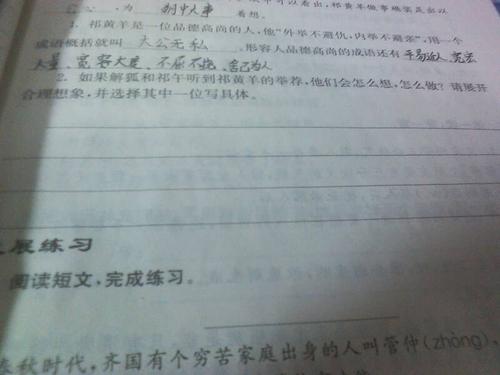 为
看想。
1. 祁黄羊是一位品德高尚的人,他“外举不避仇,内举不避亲”,用一个
成语概括就叫 大公无私 ,形容人品德高尚的成语还有 平易近人、宽宏
大量、宽容大度、不屈不挠、舍己为人
2. 如果解狐和祁午听到祁黄羊的举荐,他们会怎么想,怎么做?请展开
合理想象,并选择其中一位写具体。
展练习
阅读短文,完成练习。
春秋时代,齐国有个穷苦家庭出身的人叫管仲(zhòng),